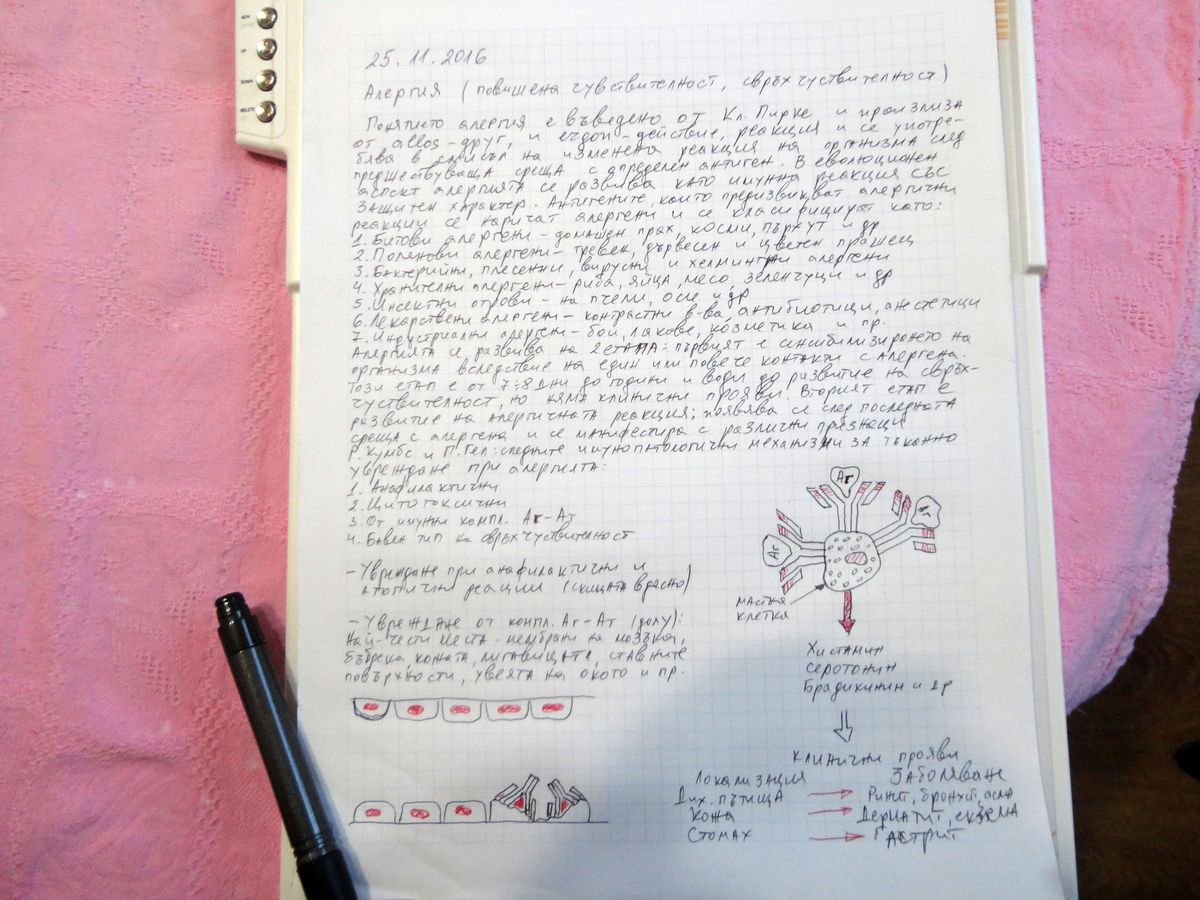 NEW
UP
DOWN
DELETE
25.11.2016
Алергия (повишена чувствителност, свръхчуствителност)
Понятието алергия е въведено от Кл. Пирке и произлиза
от allos-друг, и ергон-действие, реакция и се употре-
бява в смисъл на изменена реакция на организма след
предшествуваща среща с определен антиген. В еволюционен
аспект алергията се развива като имунна реакция със
защитен характер. Антигените, които предизвикват алергични
реакции се наричат алергени и се класифицират като:
1. Битови алергени - домашен прах, косми, пърхут и др
2. Поленови алергени - тревен, дървесен и цветен прашец
3. Бактерийни, плесенни, вирусни и хелминтни алергени
4. Хранителни алергени - риба, яйца, месо, зеленчуци и др
5. Инсектни отрови - на пчели, оси и др
6. Лекарствени алергени - контрастни в-ва, антибиотици, анестетици
7. Индустриални алергени - бои, лакове, козметика и пр.
Алергията се развива на 2 етапа: първият е сенсибилизирането на
организма вследствие на един или повече контакти с алергена.
Този етап е от 7÷8 дни до години и води до развитие на свръх-
чуствителност, но няма клинични прояви. Вторият етап е
развитие на алергичната реакция; появява се след последната
среща с алергена и се манифестира с различни признаци
Р. Кумбс и П. Гел: следните имунопатологични механизми за тъканно
увреждане при алергията:
1. Анафилактични
2. Цитотоксични
3. От имунни компл. Аг-Ат
4. Бавен тип на свръхчуствителност
- Увреждане при анафилактични и
атопични реации (скицата вдясно)
- Увреждане от компл. Аг-Ат (долу):
Най-чести места - мембрани на мозъка,
бъбрека, кожата, лигавицата, ставните
повърхности, увеята на окото и пр.
Аг
Аг
Аг
мастна
клетка
Хистамин
Серотонин
Брадикинин и др
клинични прояви
Локализация Заболяване
Дих. пътища Ринит, бронхит, астма
Кожа Дерматит, екзема
Стомах Гастрит